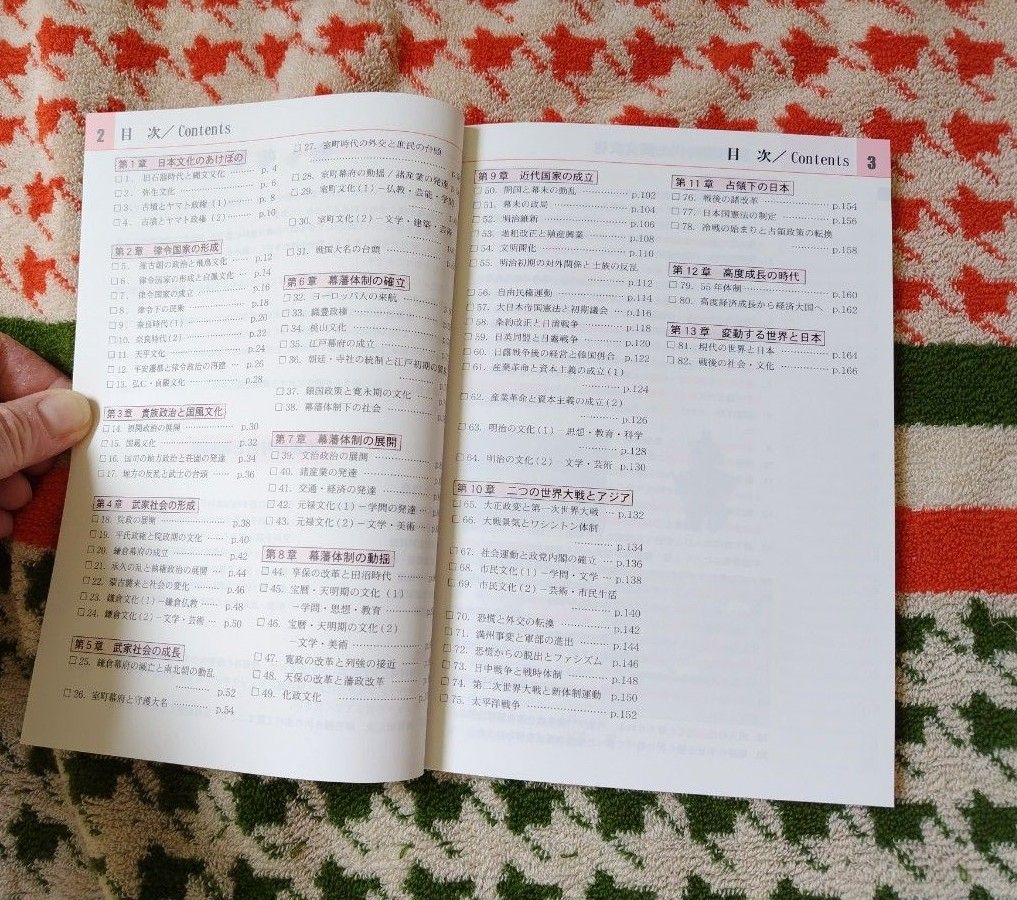 2 目 次／Contents
第1章 日本文化のあけぼの
□1. 旧石器時代と縄文文化 …… p.4
□2. 弥生文化 …… p.6
□3. 古墳とヤマト政権(1) …… p.8
□4. 古墳とヤマト政権(2) …… p.10
第2章 律令国家の形成
□5. 推古朝の政治と飛鳥文化 … p.12
□6. 律令国家の形成と白鳳文化 … p.14
□7. 律令国家の成立 …… p.16
□8. 律令下の民衆 …… p.18
□9. 奈良時代(1) …… p.20
□10. 奈良時代(2) …… p.22
□11. 天平文化 …… p.24
□12. 平安遷都と律令政治の再建 … p.26
□13. 弘仁・貞観文化 …… p.28
第3章 貴族政治と国風文化
□14. 摂関政治の展開 …… p.30
□15. 国風文化 …… p.32
□16. 国司の地方政治と荘園の発達 p.34
□17. 地方の反乱と武士の台頭 … p.36
第4章 武家社会の形成
□18. 院政の展開 …… p.38
□19. 平氏政権と院政期の文化 … p.40
□20. 鎌倉幕府の成立 …… p.42
□21. 承久の乱と執権政治の展開 … p.44
□22. 蒙古襲来と社会の変化 …… p.46
□23. 鎌倉文化(1)－鎌倉仏教 …… p.48
□24. 鎌倉文化(2)－文学・芸術 … p.50
第5章 武家社会の成長
□25. 鎌倉幕府の滅亡と南北朝の動乱
…… p.52
□26. 室町幕府と守護大名 …… p.54
□27. 室町時代の外交と庶民の台頭
□28. 室町幕府の動揺／諸産業の発達
□29. 室町文化(1)－仏教・芸能・学問
□30. 室町文化(2)－文学・建築・芸術
□31. 戦国大名の台頭 ……
第6章 幕藩体制の確立
□32. ヨーロッパ人の来航 ……
□33. 織豊政権 ……
□34. 桃山文化 ……
□35. 江戸幕府の成立 ……
□36. 朝廷・寺社の統制と江戸初期の
□37. 鎖国政策と寛永期の文化 ……
□38. 幕藩体制下の社会 ……
第7章 幕藩体制の展開
□39. 文治政治の展開 ……
□40. 諸産業の発達 ……
□41. 交通・経済の発達 ……
□42. 元禄文化(1)－学問の発達 …
□43. 元禄文化(2)－文学・美術 …
第8章 幕藩体制の動揺
□44. 享保の改革と田沼時代 ……
□45. 宝暦・天明期の文化(1)
－学問・思想・教育 ……
□46. 宝暦・天明期の文化(2)
－文学・美術 ……
□47. 寛政の改革と列強の接近 ……
□48. 天保の改革と藩政改革 ……
□49. 化政文化 ……
目 次／Contents 3
第9章 近代国家の成立
□50. 開国と幕末の動乱 …… p.102
□51. 幕末の政局 …… p.104
□52. 明治維新 …… p.106
□53. 地租改正と殖産興業 …… p.108
□54. 文明開化 …… p.110
□55. 明治初期の対外関係と士族の反乱
…… p.112
□56. 自由民権運動 …… p.114
□57. 大日本帝国憲法と初期議会 … p.116
□58. 条約改正と日清戦争 …… p.118
□59. 日英同盟と日露戦争 …… p.120
□60. 日露戦争後の経営と韓国併合 p.122
□61. 産業革命と資本主義の成立(1)
…… p.124
□62. 産業革命と資本主義の成立(2)
…… p.126
□63. 明治の文化(1) 思想・教育・科学
…… p.128
□64. 明治の文化(2) 文学・芸術 p.130
第10章 二つの世界大戦とアジア
□65. 大正政変と第一次世界大戦 … p.132
□66. 大戦景気とワシントン体制
…… p.134
□67. 社会運動と政党内閣の確立 … p.136
□68. 市民文化(1)－学問・文学 … p.138
□69. 市民文化(2)－芸術・市民生活
…… p.140
□70. 恐慌と外交の転換 …… p.142
□71. 満州事変と軍部の進出 …… p.144
□72. 恐慌からの脱出とファシズム p.146
□73. 日中戦争と戦時体制 …… p.148
□74. 第二次世界大戦と新体制運動 p.150
□75. 太平洋戦争 …… p.152
第11章 占領下の日本
□76. 戦後の諸改革 …… p.154
□77. 日本国憲法の制定 …… p.156
□78. 冷戦の始まりと占領政策の転換
…… p.158
第12章 高度成長の時代
□79. 55年体制 …… p.160
□80. 高度経済成長から経済大国へ p.162
第13章 変動する世界と日本
□81. 現代の世界と日本 …… p.164
□82. 戦後の社会・文化 …… p.166